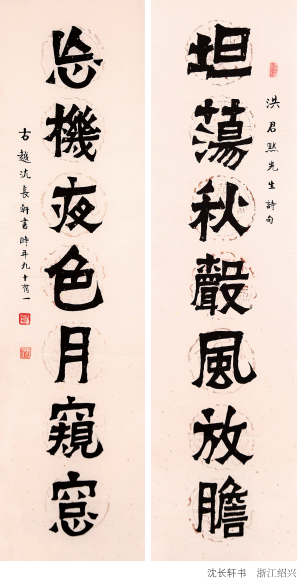 坦蕩秋聲風放膽
洪君默先生詩句
忘機夜色月窺窓
古越沈長軒書時年九十有一
沈长轩书 浙江绍兴